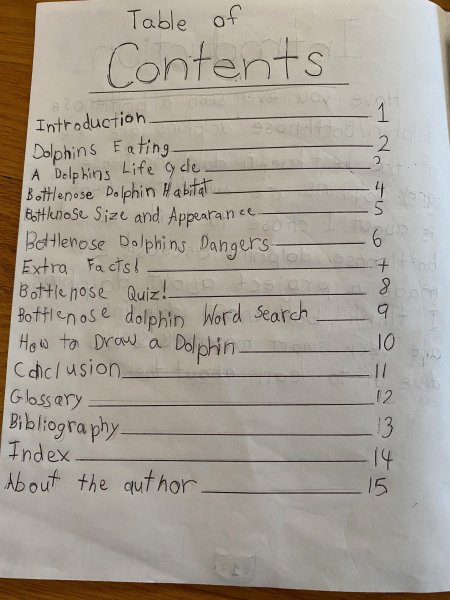 Table of
Contents
Introduction 1
Dolphins Eating 2
A Dolphins Life Cycle 3
Bottlenose Dolphin Habitat 4
Bottlenose Size and Appearance 5
Bottlenose Dolphins Dangers 6
Extra Facts! 7
Bottlenose Quiz! 8
Bottlenose dolphin Word Search 9
How to Draw a Dolphin 10
Conclusion 11
Glossary 12
Bibliography 13
Index 14
About the author 15